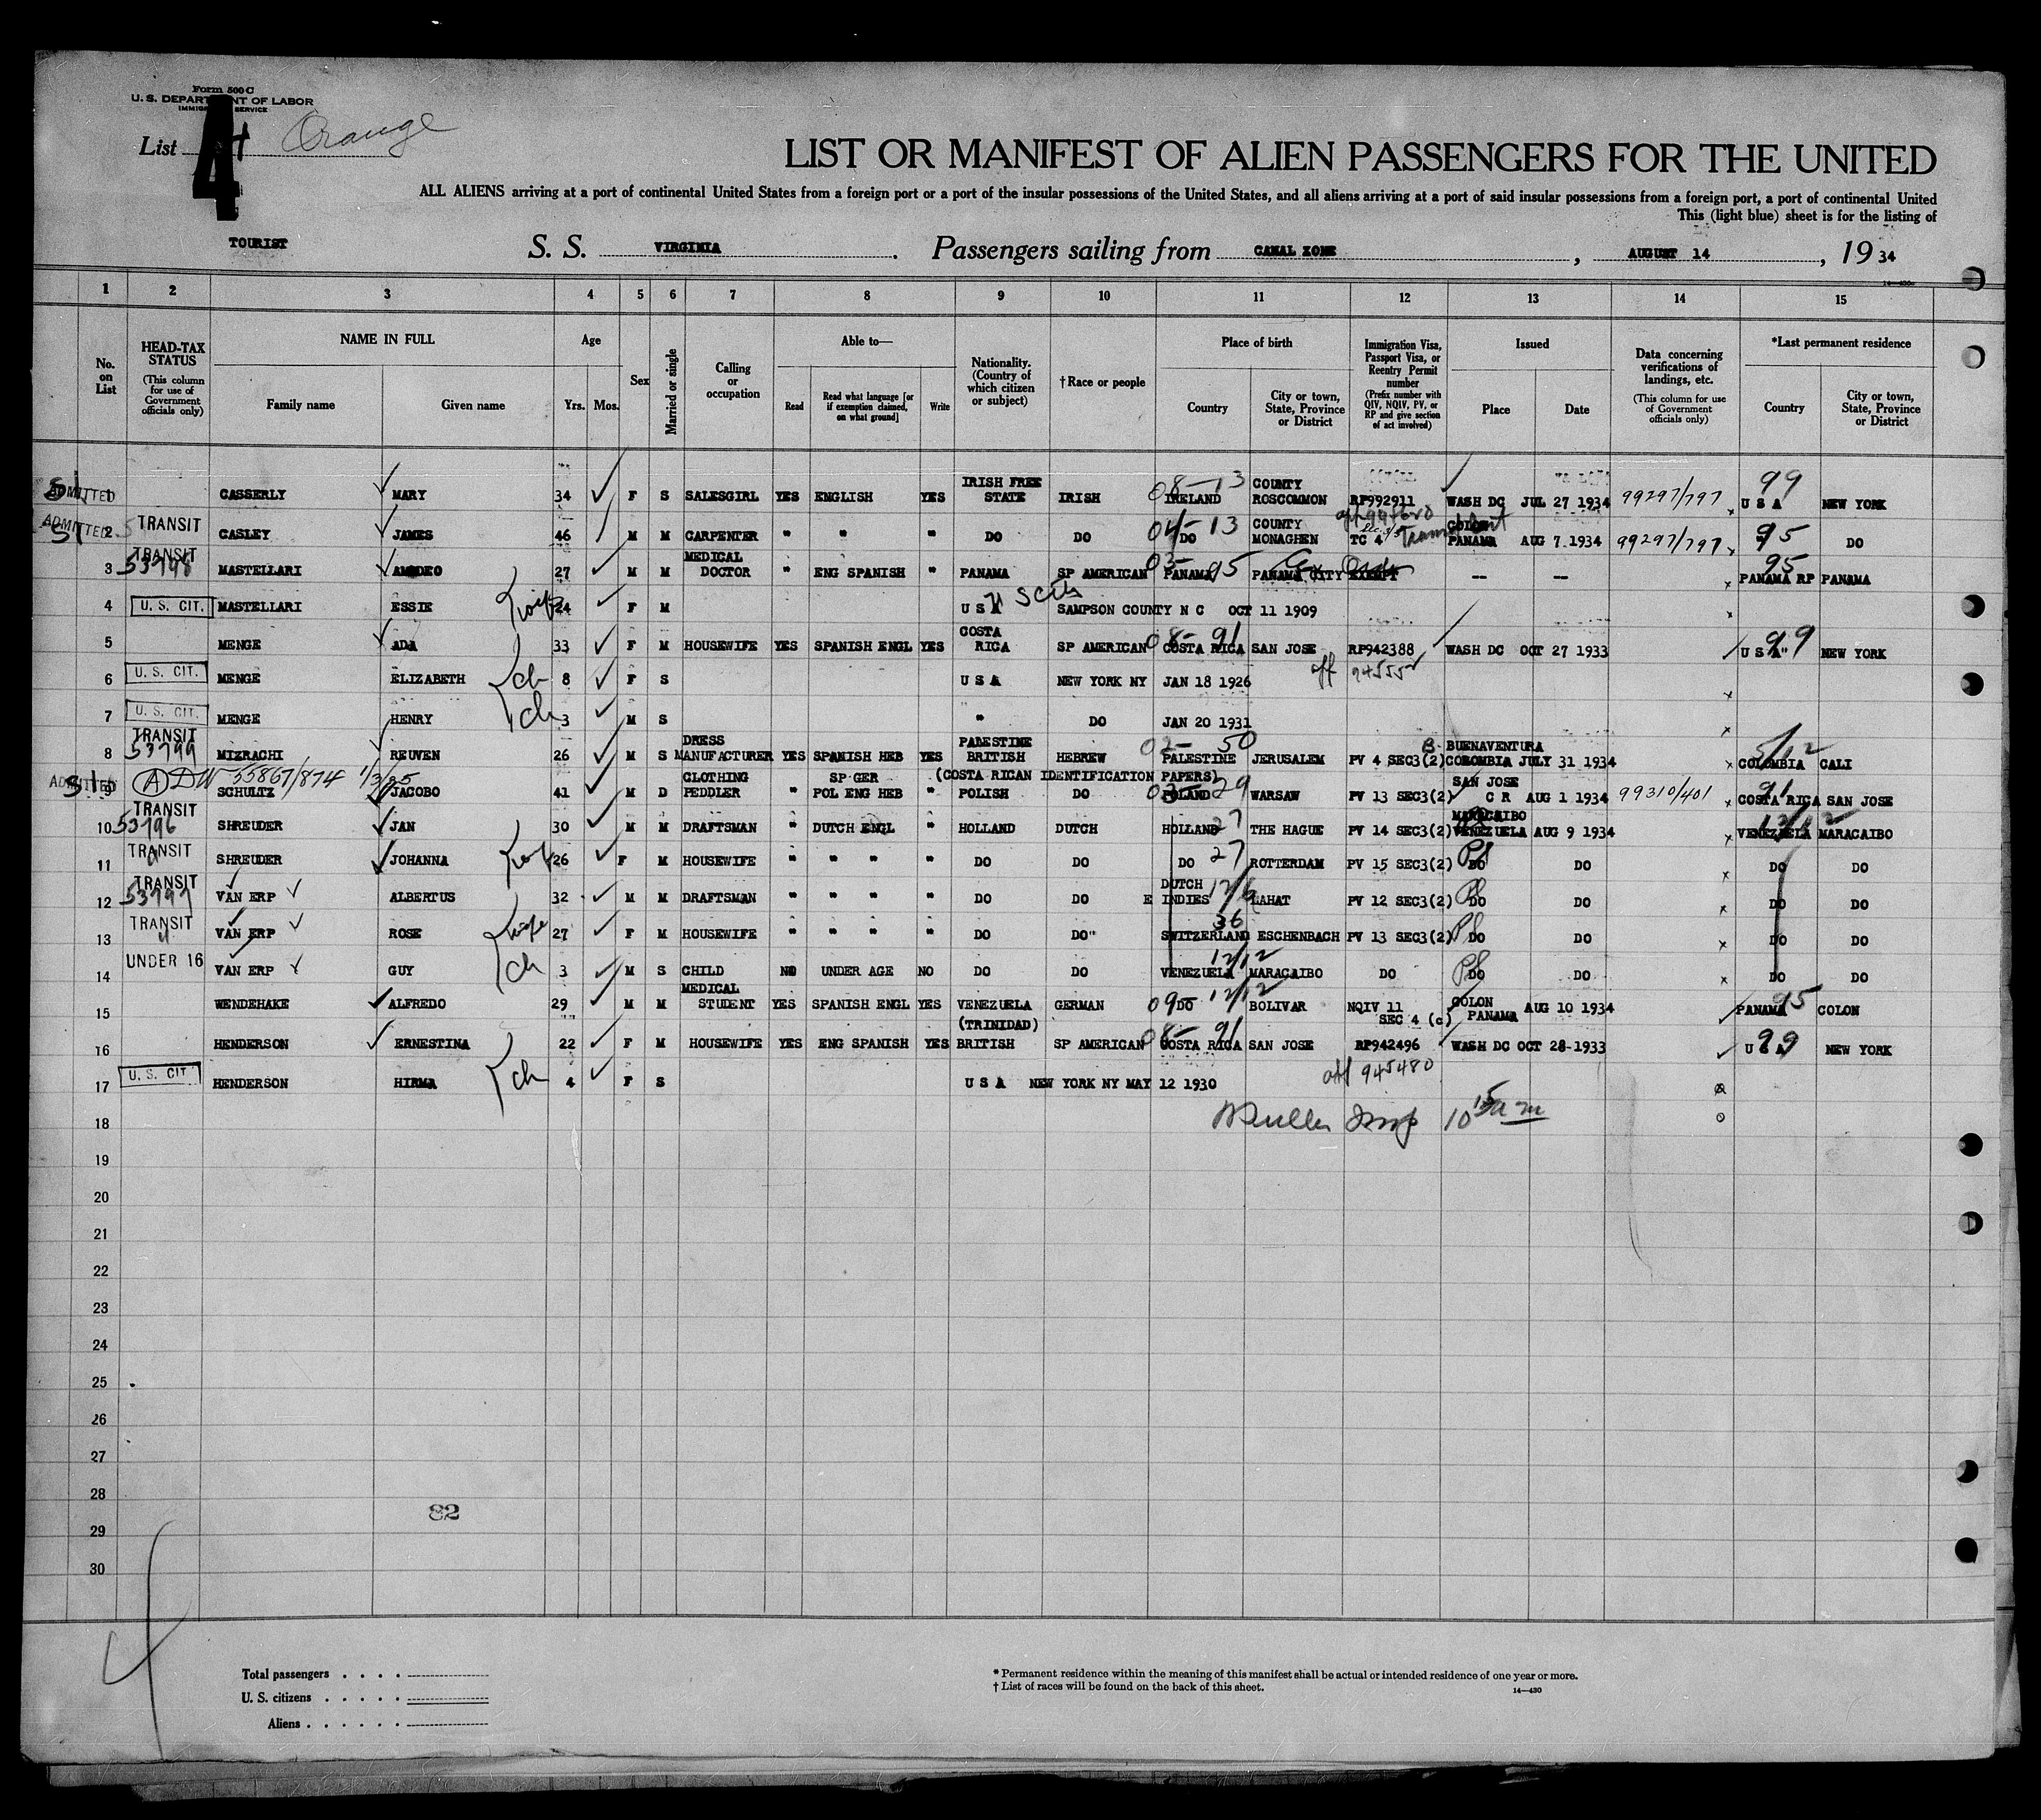 Form 500 C
U. S. DEPARTMENT OF LABOR
IMMIGRATION SERVICE
List 4 Orange
LIST OR MANIFEST OF ALIEN PASSENGERS FOR THE UNITED
ALL ALIENS arriving at a port of continental United States from a foreign port or a port of the insular possessions of the United States, and all aliens arriving at a port of said insular possessions from a foreign port, a port of continental United
This (light blue) sheet is for the listing of
TOURIST S. S. VIRGINIA . Passengers sailing from CANAL ZONE , AUGUST 14 , 19 34
14-430
1 2 3 4 5 6 7 8 9 10 11 12 13 14 15
No. on List
HEAD-TAX STATUS (This column for use of Government officials only)
NAME IN FULL Family name Given name
Age Yrs. Mos.
Sex
Married or single
Calling or occupation
Able to— Read Read what language [or if exemption claimed, on what ground] Write
Nationality. (Country of which citizen or subject)
†Race or people
Place of birth Country City or town, State, Province or District
Immigration Visa, Passport Visa, or Reentry Permit number (Prefix number with QIV, NQIV, PV, or RP and give section of act involved)
Issued Place Date
Data concerning verifications of landings, etc. (This column for use of Government officials only)
*Last permanent residence Country City or town, State, Province or District
ADMITTED 1 CASSERLY MARY 34 F S SALESGIRL YES ENGLISH YES IRISH FREE STATE IRISH 08-13 IRELAND COUNTY ROSCOMMON RP992911 WASH DC JUL 27 1934 99297/797 99 U S A NEW YORK
ADMITTED 2 TRANSIT CASLEY JAMES 46 M M CARPENTER " " " DO DO 04-13 DO COUNTY MONAGHEN TC 4 COLON PANAMA AUG 7 1934 99297/797 95 DO
3 TRANSIT 53798 MASTELLARI AMADEO 27 M M MEDICAL DOCTOR " ENG SPANISH " PANAMA SP AMERICAN 03-95 PANAMA PANAMA CITY EXEMPT -- -- 95 PANAMA RP PANAMA
4 U. S. CIT. MASTELLARI ESSIE wife 24 F M U S A SAMPSON COUNTY N C OCT 11 1909
5 MENGE ADA 33 F M HOUSEWIFE YES SPANISH ENGL YES COSTA RICA SP AMERICAN 08-91 COSTA RICA SAN JOSE RP942388 WASH DC OCT 27 1933 99 U S A NEW YORK
6 U. S. CIT. MENGE ELIZABETH ch 8 F S U S A NEW YORK NY JAN 18 1926
7 U. S. CIT. MENGE HENRY ch 3 M S " DO JAN 20 1931
8 TRANSIT 53799 MIZRACHI REUVEN 26 M S DRESS MANUFACTURER YES SPANISH HEB YES PALESTINE BRITISH HEBREW 02-50 PALESTINE JERUSALEM PV 4 SEC3(2) BUENAVENTURA COLOMBIA JULY 31 1934 5/12 COLOMBIA CALI
(COSTA RICAN IDENTIFICATION PAPERS)
ADMITTED 9 (A) DW 55867/874 1/3/35 SCHULTZ JACOBO 41 M D CLOTHING PEDDLER " SP GER POL ENG HEB " POLISH DO 03-29 POLAND WARSAW PV 13 SEC3(2) SAN JOSE C R AUG 1 1934 99310/401 91 COSTA RICA SAN JOSE
10 TRANSIT 53796 SHREUDER JAN 30 M M DRAFTSMAN " DUTCH ENGL " HOLLAND DUTCH HOLLAND 27 THE HAGUE PV 14 SEC3(2) MARACAIBO VENEZUELA AUG 9 1934 12/12 VENEZUELA MARACAIBO
11 TRANSIT SHREUDER JOHANNA wife 26 F M HOUSEWIFE " " " " DO DO DO 27 ROTTERDAM PV 15 SEC3(2) DO DO DO DO
12 TRANSIT 53797 VAN ERP ALBERTUS 32 M M DRAFTSMAN " " " " DO DO DUTCH E INDIES LAHAT PV 12 SEC3(2) DO DO DO DO
13 TRANSIT VAN ERP ROSE wife 27 F M HOUSEWIFE " " " " DO DO" 36 SWITZERLAND ESCHENBACH PV 13 SEC3(2) DO DO DO DO
14 UNDER 16 VAN ERP GUY ch 3 M S CHILD NO UNDER AGE NO DO DO 12/12 VENEZUELA MARACAIBO DO DO DO DO DO
15 WENDEHAKE ALFREDO 29 M M MEDICAL STUDENT YES SPANISH ENGL YES VENEZUELA GERMAN 09 DO 12/12 BOLIVAR NQIV 11 SEC 4 (c) COLON PANAMA AUG 10 1934 95 PANAMA COLON
16 HENDERSON ERNESTINA 22 F M HOUSEWIFE YES ENG SPANISH YES (TRINIDAD) BRITISH SP AMERICAN 08-91 COSTA RICA SAN JOSE RP942496 WASH DC OCT 28-1933 99 U S A NEW YORK
17 U. S. CIT. HENDERSON HIRMA ch 4 F S U S A NEW YORK NY MAY 12 1930 945480
18 Insp 10 15 a m
19
20
21
22
23
24
25
26
27
28
82
29
30
4
Total passengers
U. S. citizens
Aliens
* Permanent residence within the meaning of this manifest shall be actual or intended residence of one year or more.
† List of races will be found on the back of this sheet.
14—430